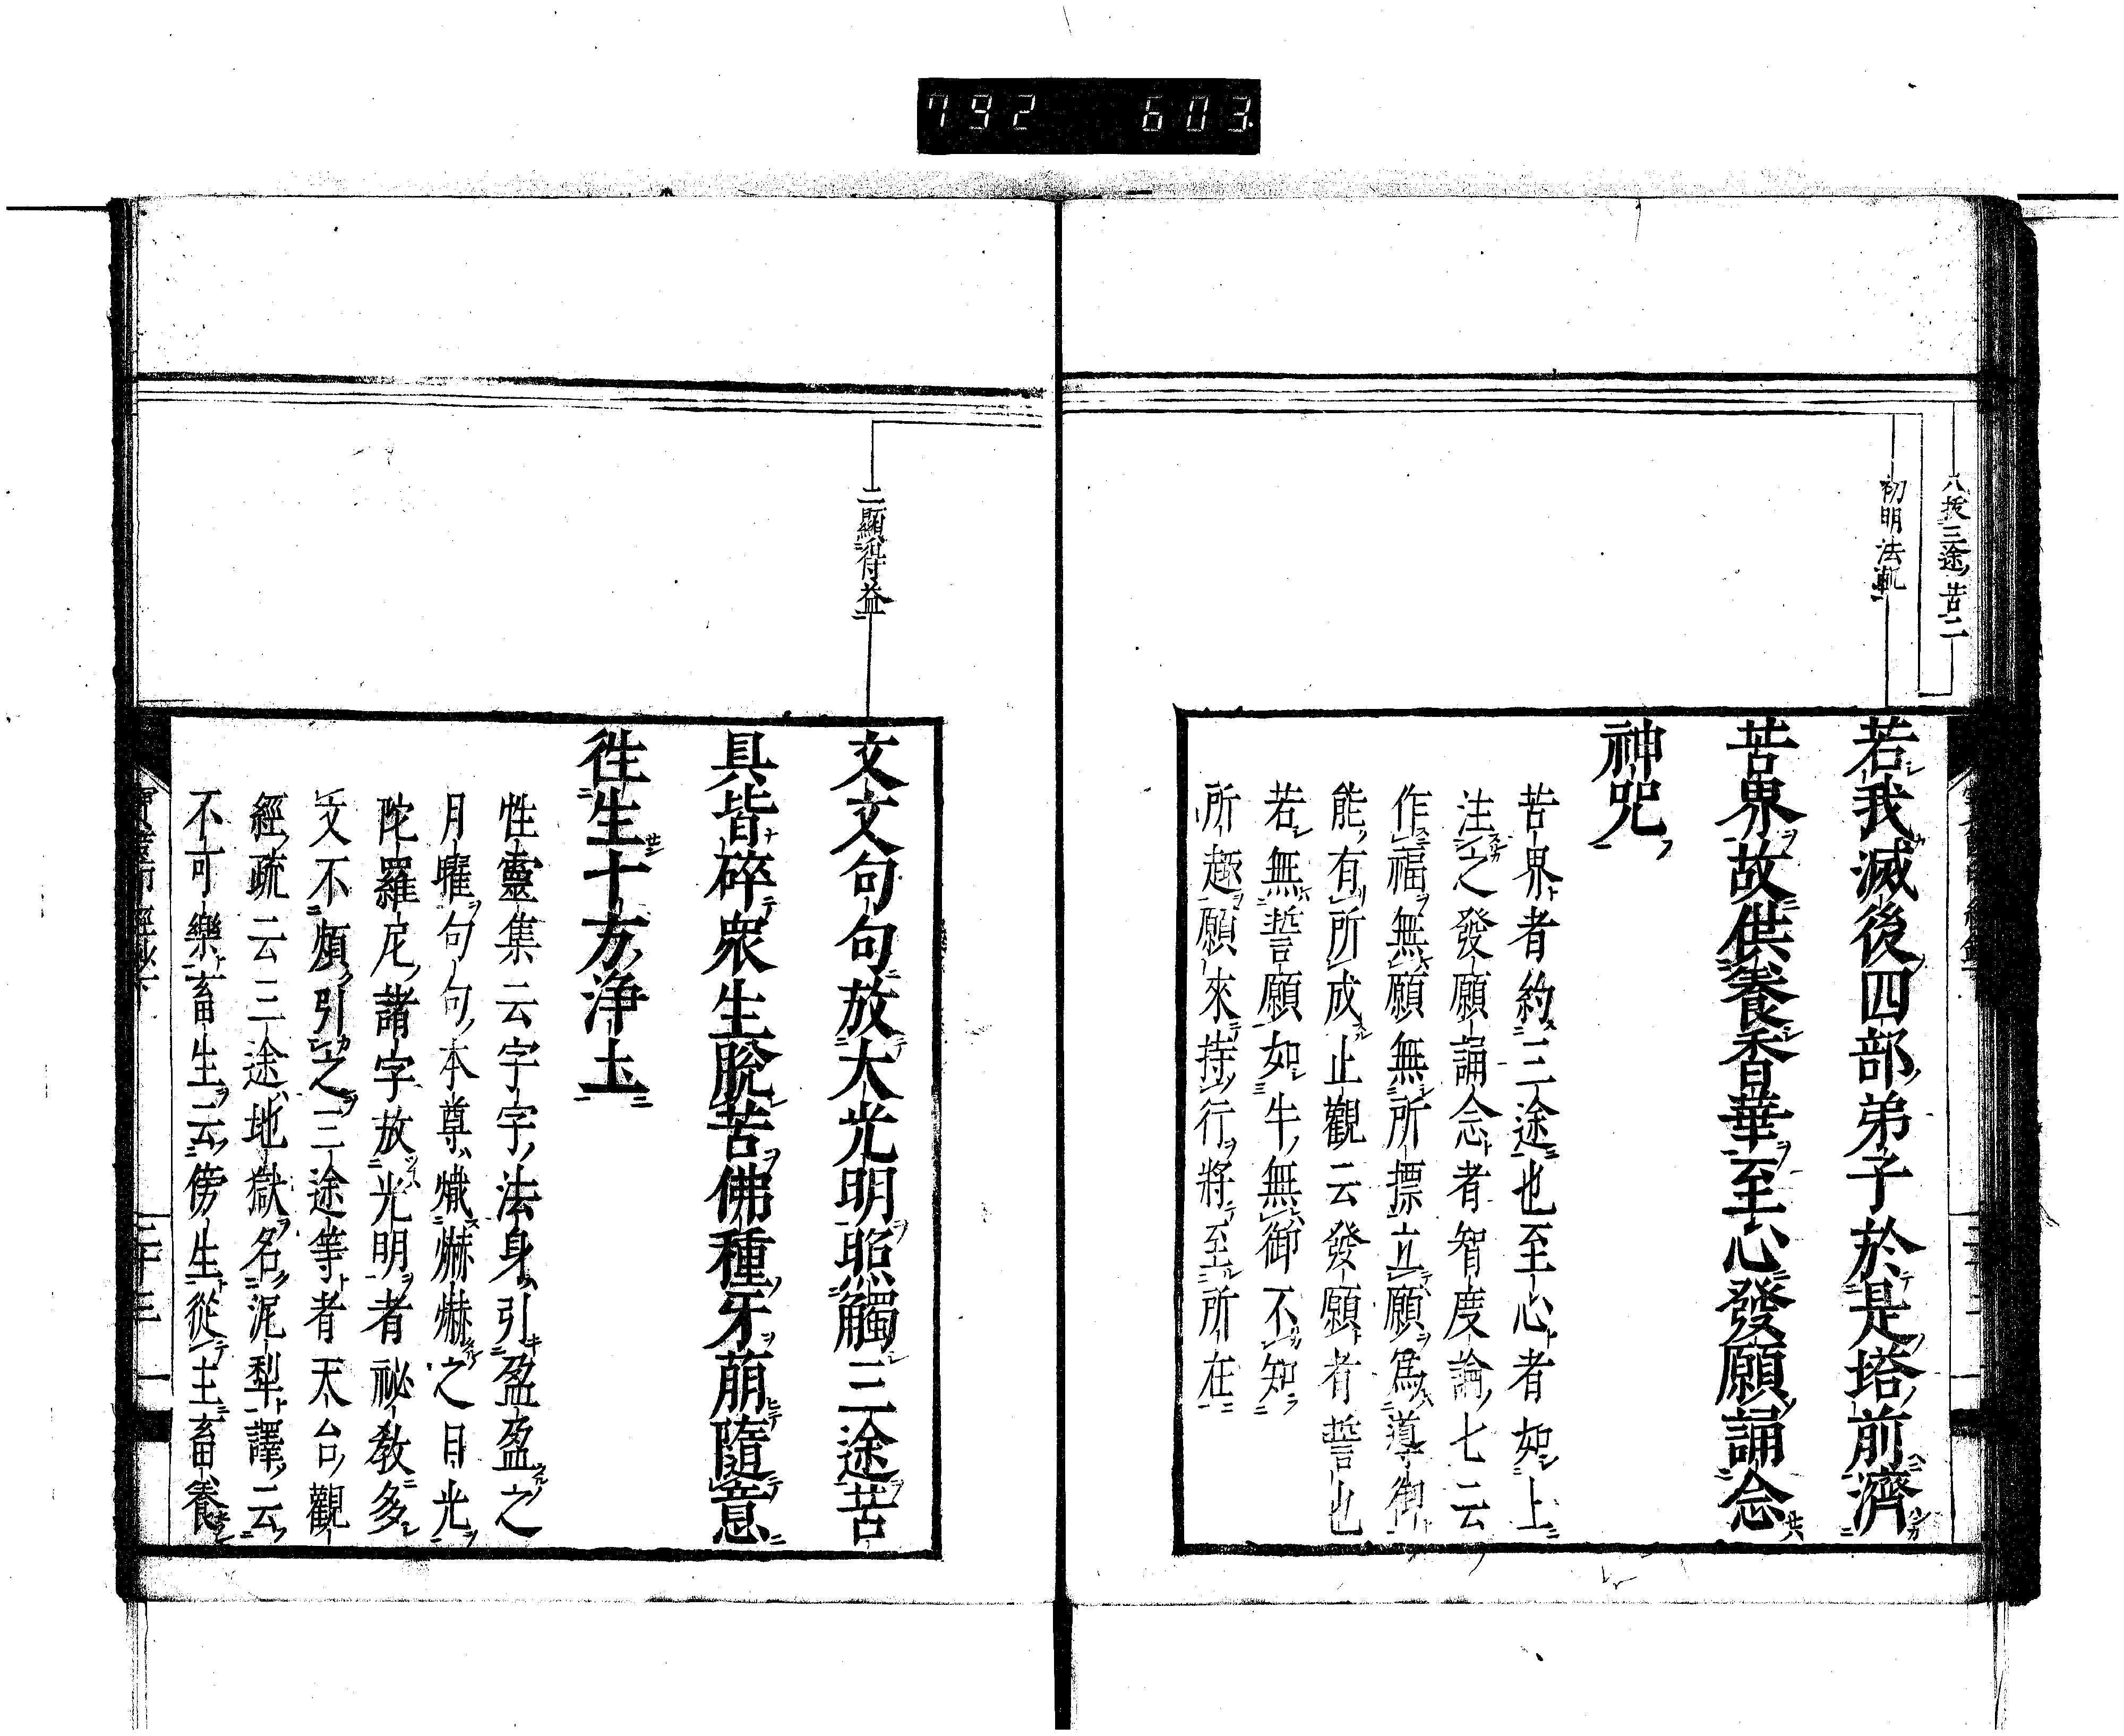 792 603
八拔三途苦二
初明法軌
若我滅後四部弟子於是塔前濟
苦界故供養香華至心發願誦念
神咒
苦界者約三途也至心者如上
注之發願誦念者智度論七云
作福無願無所標立願爲導御
能有所成止觀云發願者誓也
若無誓願如牛無御不知
所趣願來持行將至所在
二顯得益
文文句句放大光明照觸三途苦
具皆碎衆生脫苦佛種牙萠隨意
徃生十方淨土
性靈集云字字法身引盈盈之
月曜句句本尊熾爀爀之日光
陀羅尼諸字放光明者祕教多
文不煩引之三途等者天台觀
經疏云三途地獄名泥犁譯云
不可樂畜生云傍生從主畜養
二十三